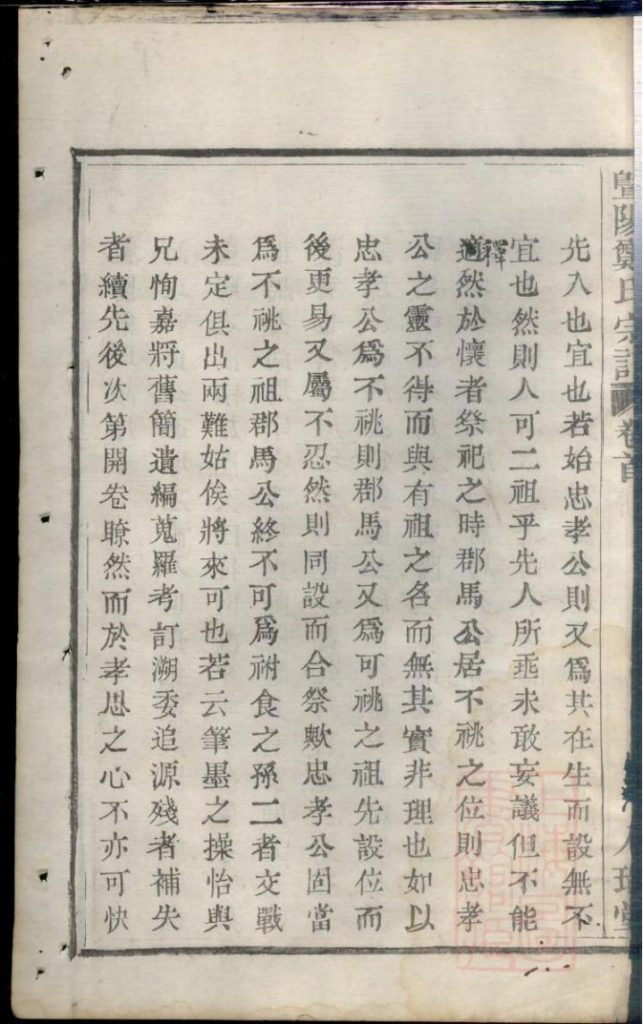 暨陽鄭氏宗譜 卷首
先入也宜也若始忠孝公則又爲其在生而設無不
宜也然則人可二祖乎先人所垂未敢妄議但不能
釋
適然於懷者祭祀之時郡馬公居不祧之位則忠孝
公之靈不得而與有祖之名而無其實非理也如以
忠孝公爲不祧則郡馬公又爲可祧之祖先設位而
後更易又屬不忍然則同設而合祭歟忠孝公固當
爲不祧之祖郡馬公終不可爲祔食之孫二者交戰
未定俱出兩難姑俟將來可也若云筆墨之操怡與
兄恂嘉將舊簡遺編蒐羅考訂溯委追源殘者補失
者續先後次第開卷瞭然而於孝思之心不亦可快